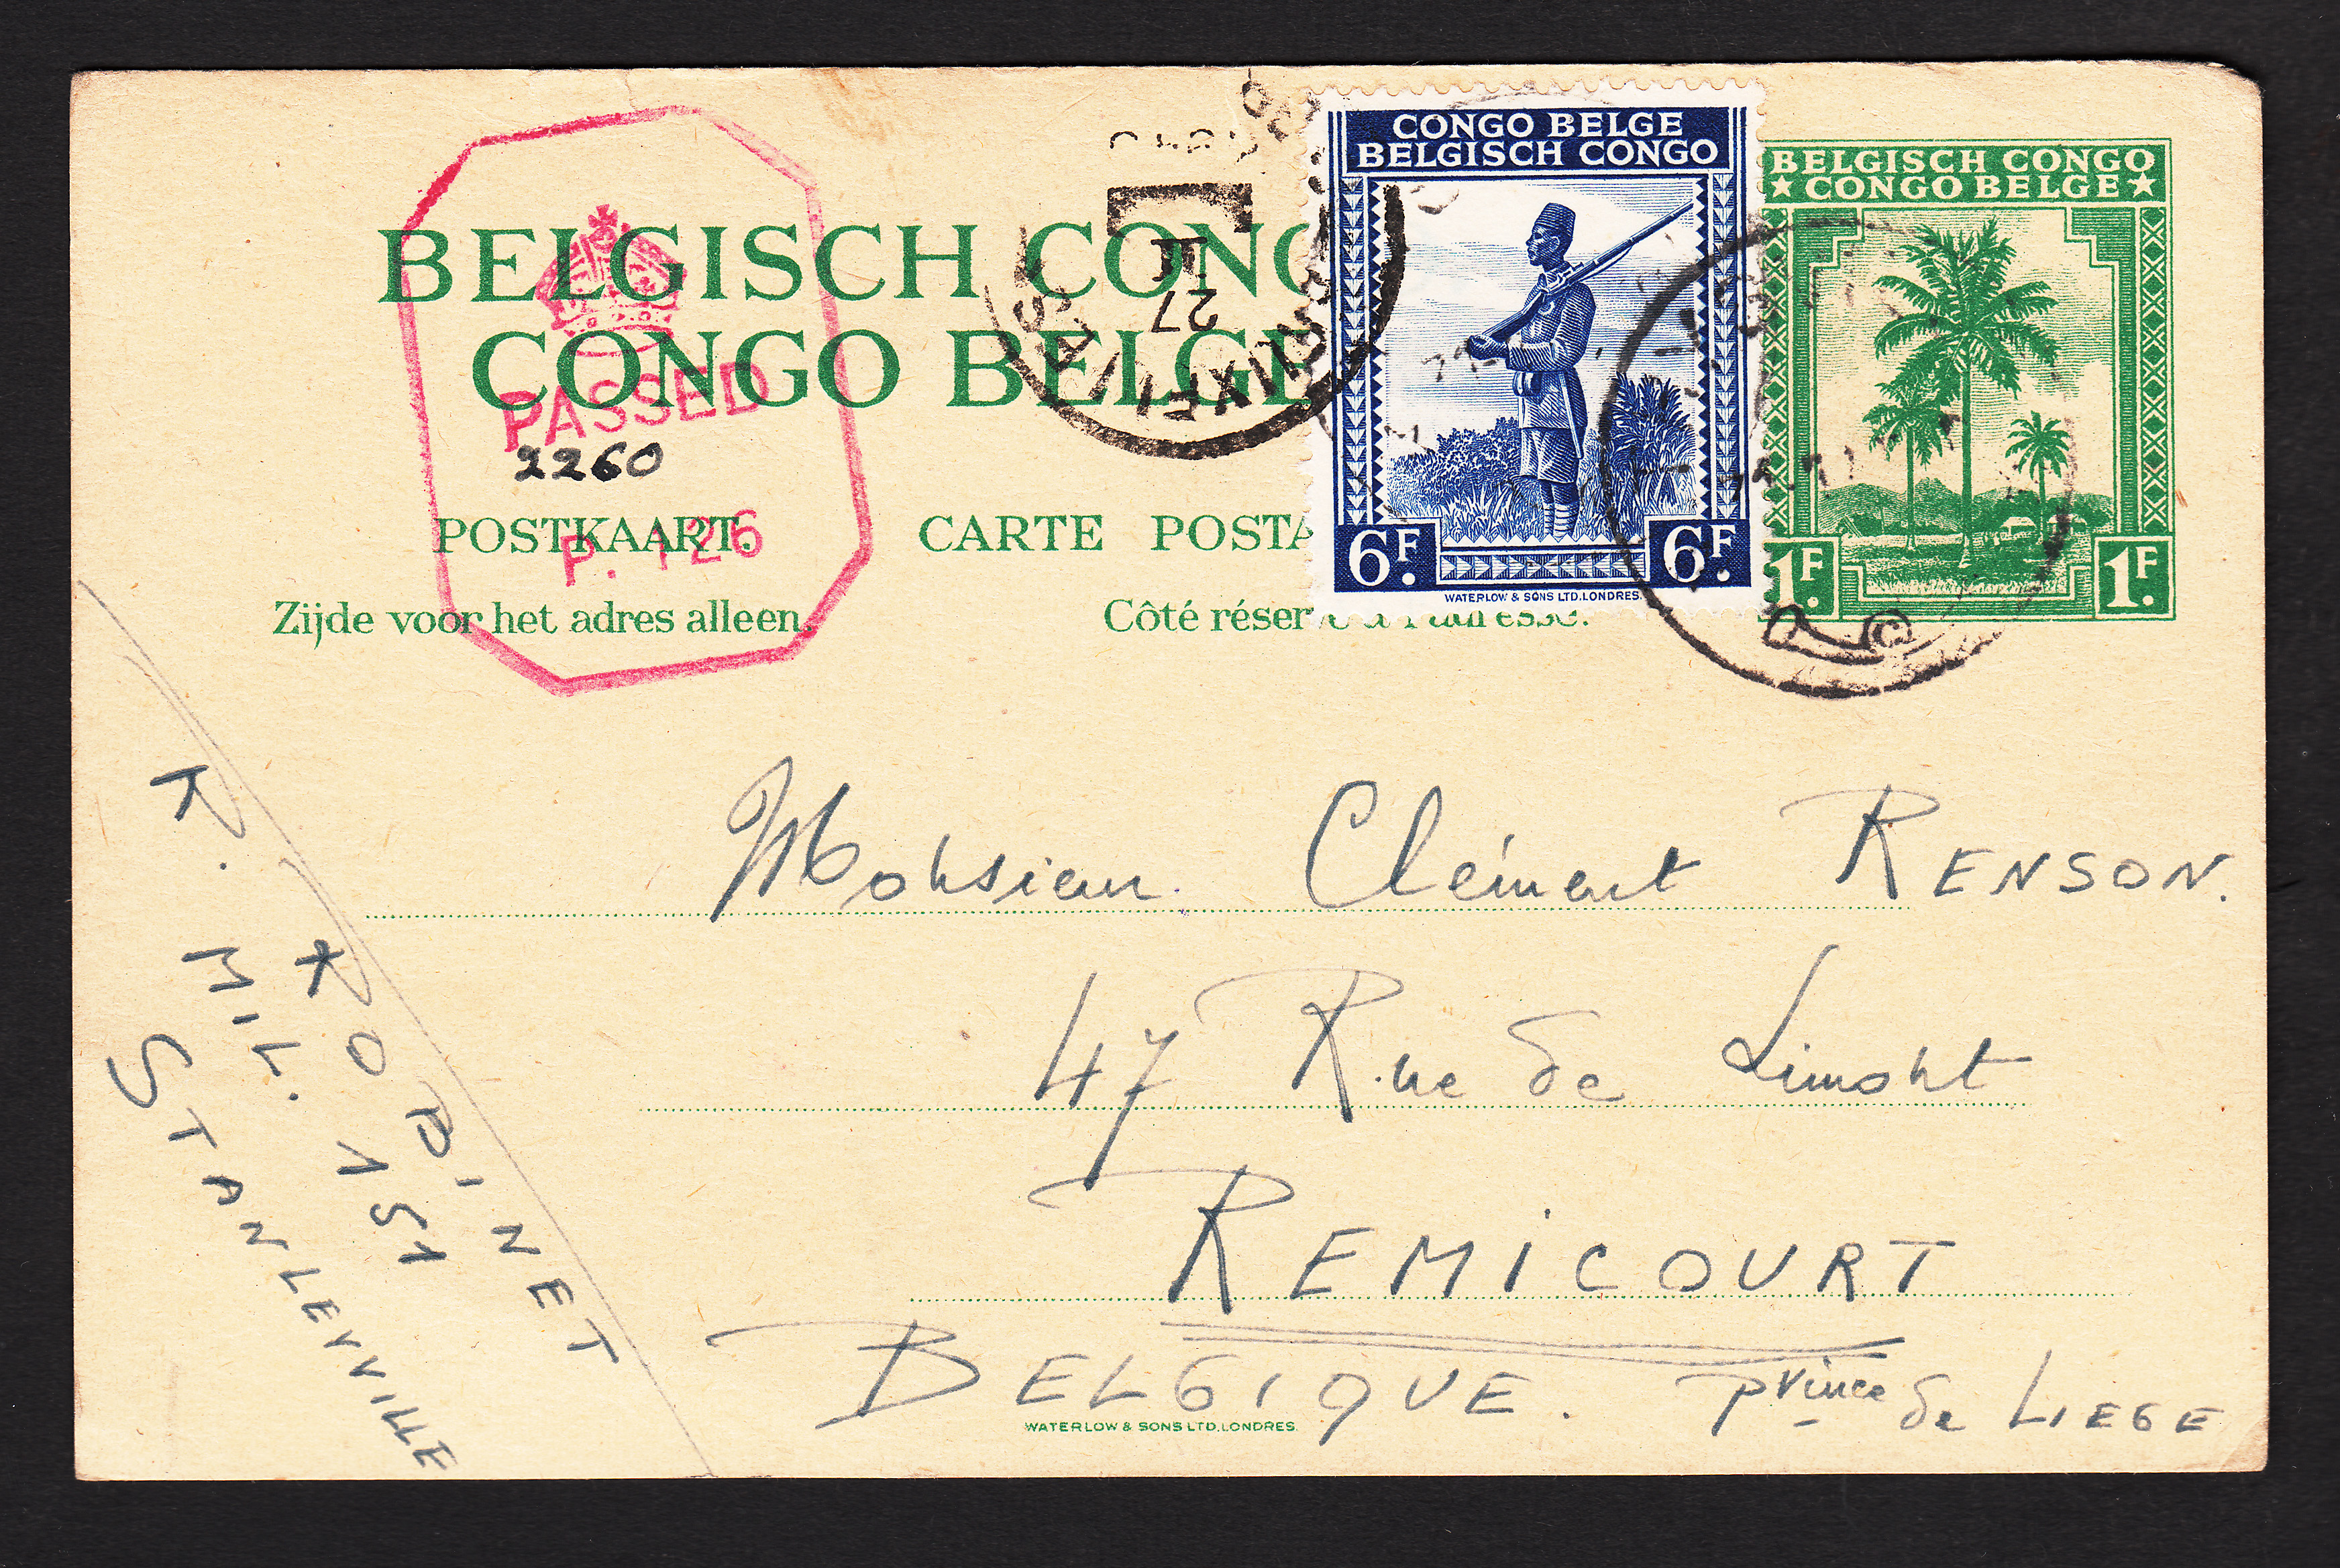 BELGISCH CONG
CONGO BELGE
POSTKAART.
CARTE POSTA
Zijde voor het adres alleen.
Côté réservé à l'adresse.
PASSED
2260
P. 126
27
CONGO BELGE
BELGISCH CONGO
6F. 6F.
WATERLOW & SONS LTD. LONDRES.
BELGISCH CONGO
★ CONGO BELGE ★
1F. 1F.
Monsieur Clément RENSON.
47 Rue de Limont
REMICOURT
BELGIQUE. Prince de LIEGE
WATERLOW & SONS LTD. LONDRES.
R. ROBINET
MIL. 151
STANLEYVILLE